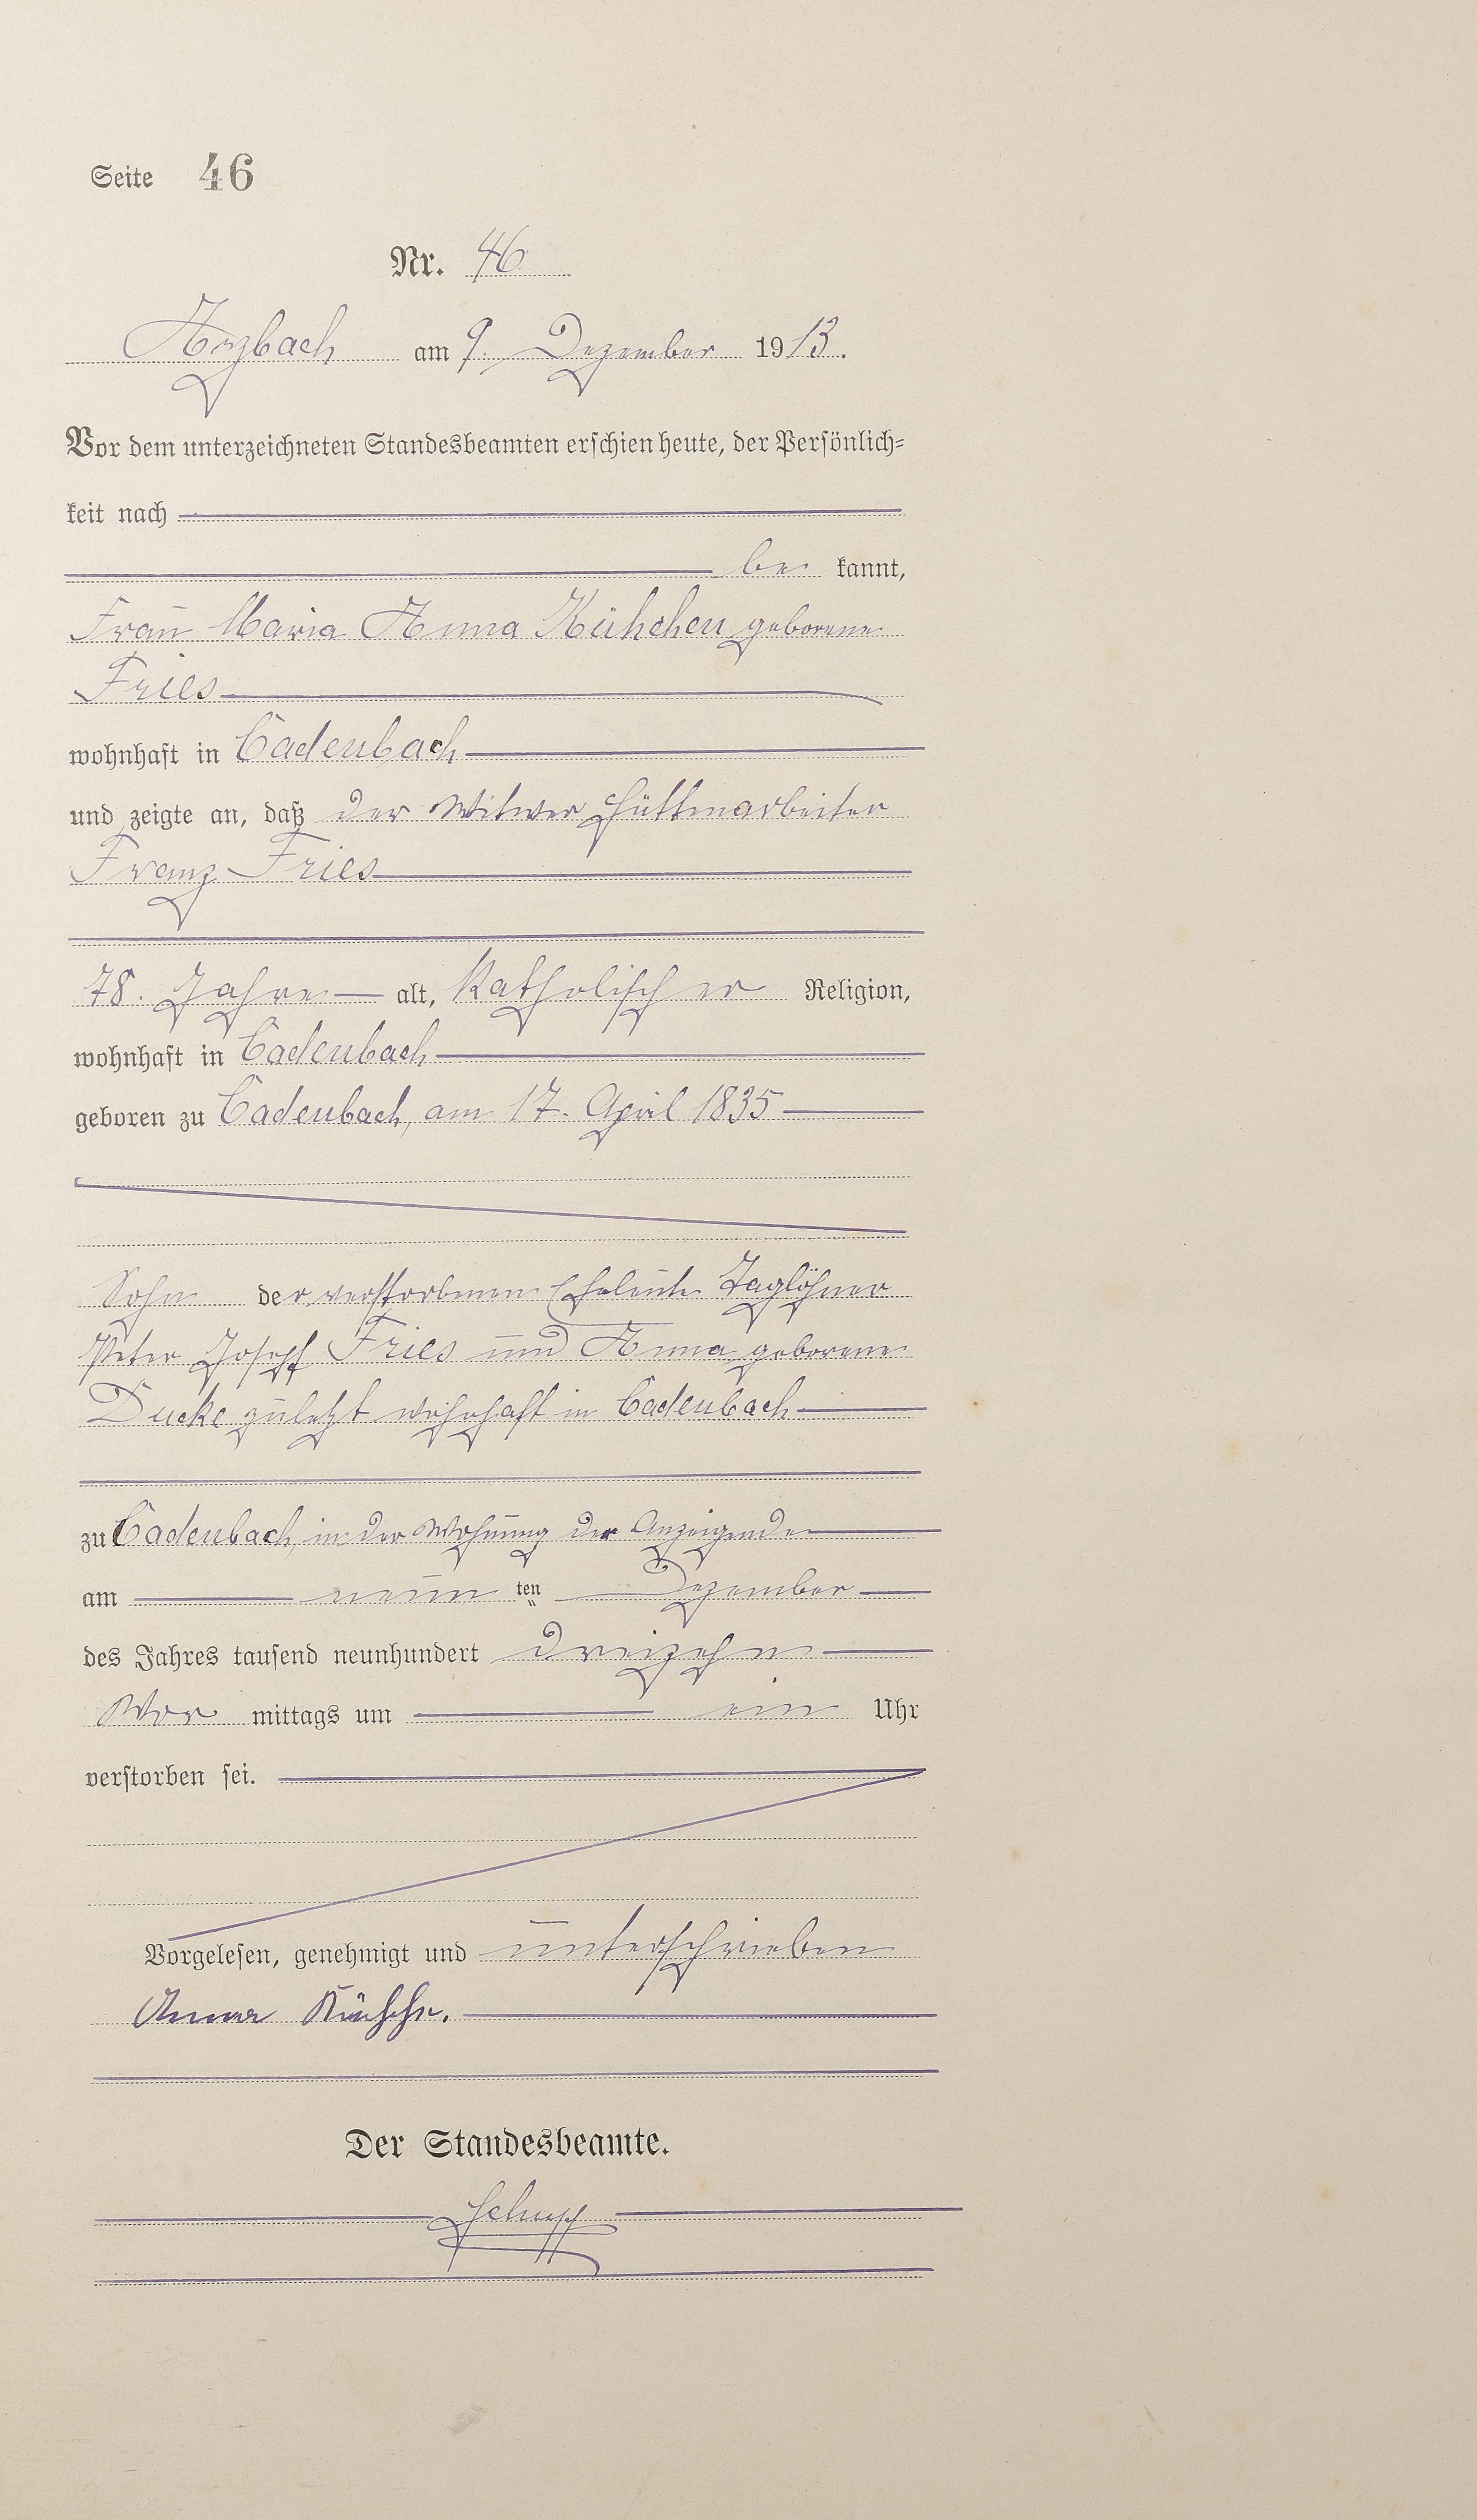 Seite 46
Nr. 46
Arzbach am 9. Dezember 1913.
Vor dem unterzeichneten Standesbeamten erschien heute, der Persönlich=
keit nach
be kannt,
Frau Maria Anna Kühchen geborene
Fries
wohnhaft in Cadenbach
und zeigte an, daß der Witwer Hüttenarbeiter
Franz Fries
78. Jahre alt, Katholischer Religion,
wohnhaft in Cadenbach
geboren zu Cadenbach, am 17. April 1835
Sohn der verstorbenen Eheleute Taglöhner
Peter Josepf Fries und Anna geborene
Ducke zuletzt wohnhaft in Cadenbach
zu Cadenbach, in der Wohnung der Anzeigende
am neun ten Dezember
des Jahres tausend neunhundert dreizehn
Vor mittags um ein Uhr
verstorben sei.
Vorgelesen, genehmigt und unterschrieben
Anna
Der Standesbeamte.
Schupp